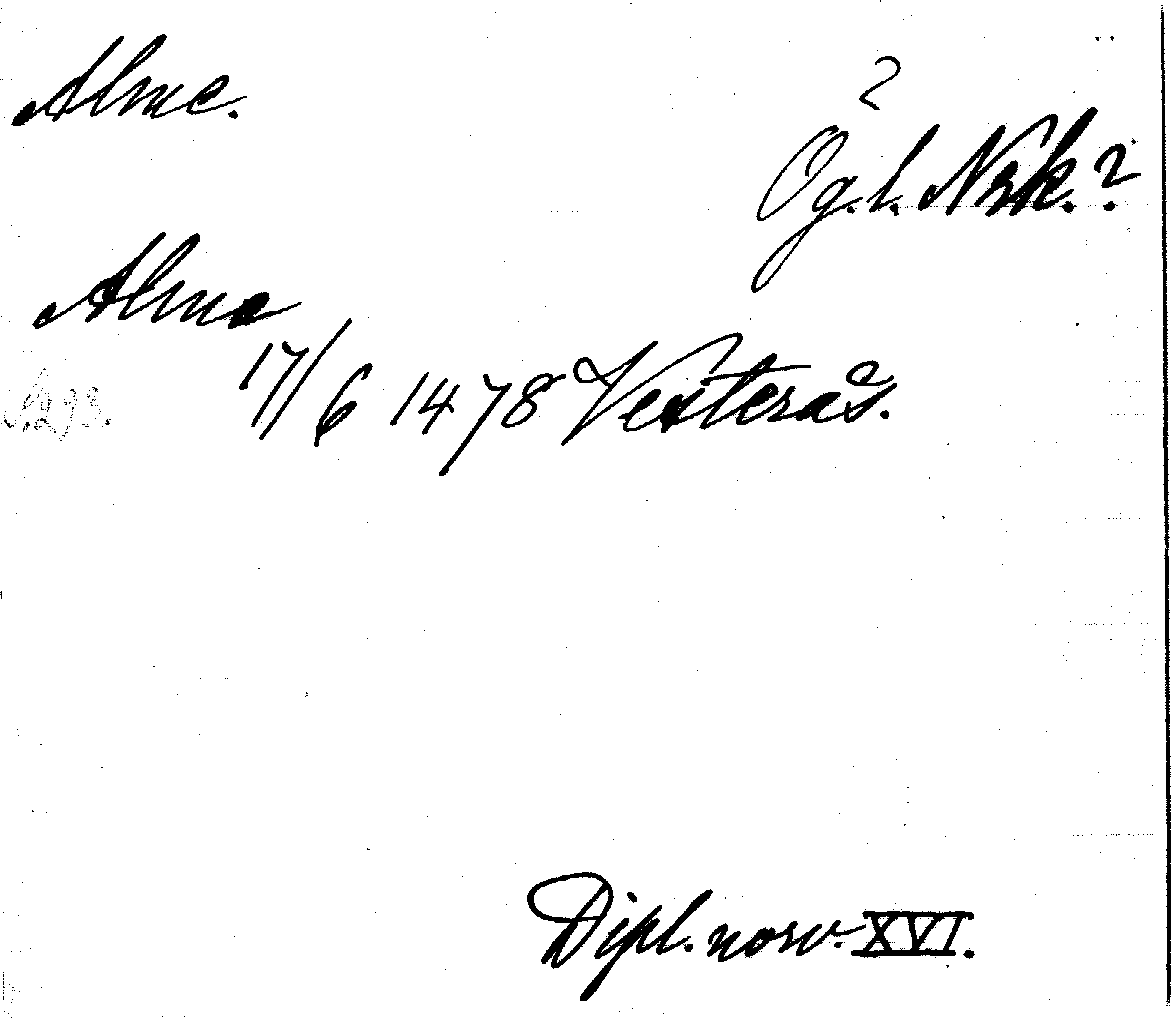 Alme.
?
Ög.l. Nrk.?
Alme
17/6 1478 Vesterås.
S.293.
Dipl. norv. XVI.